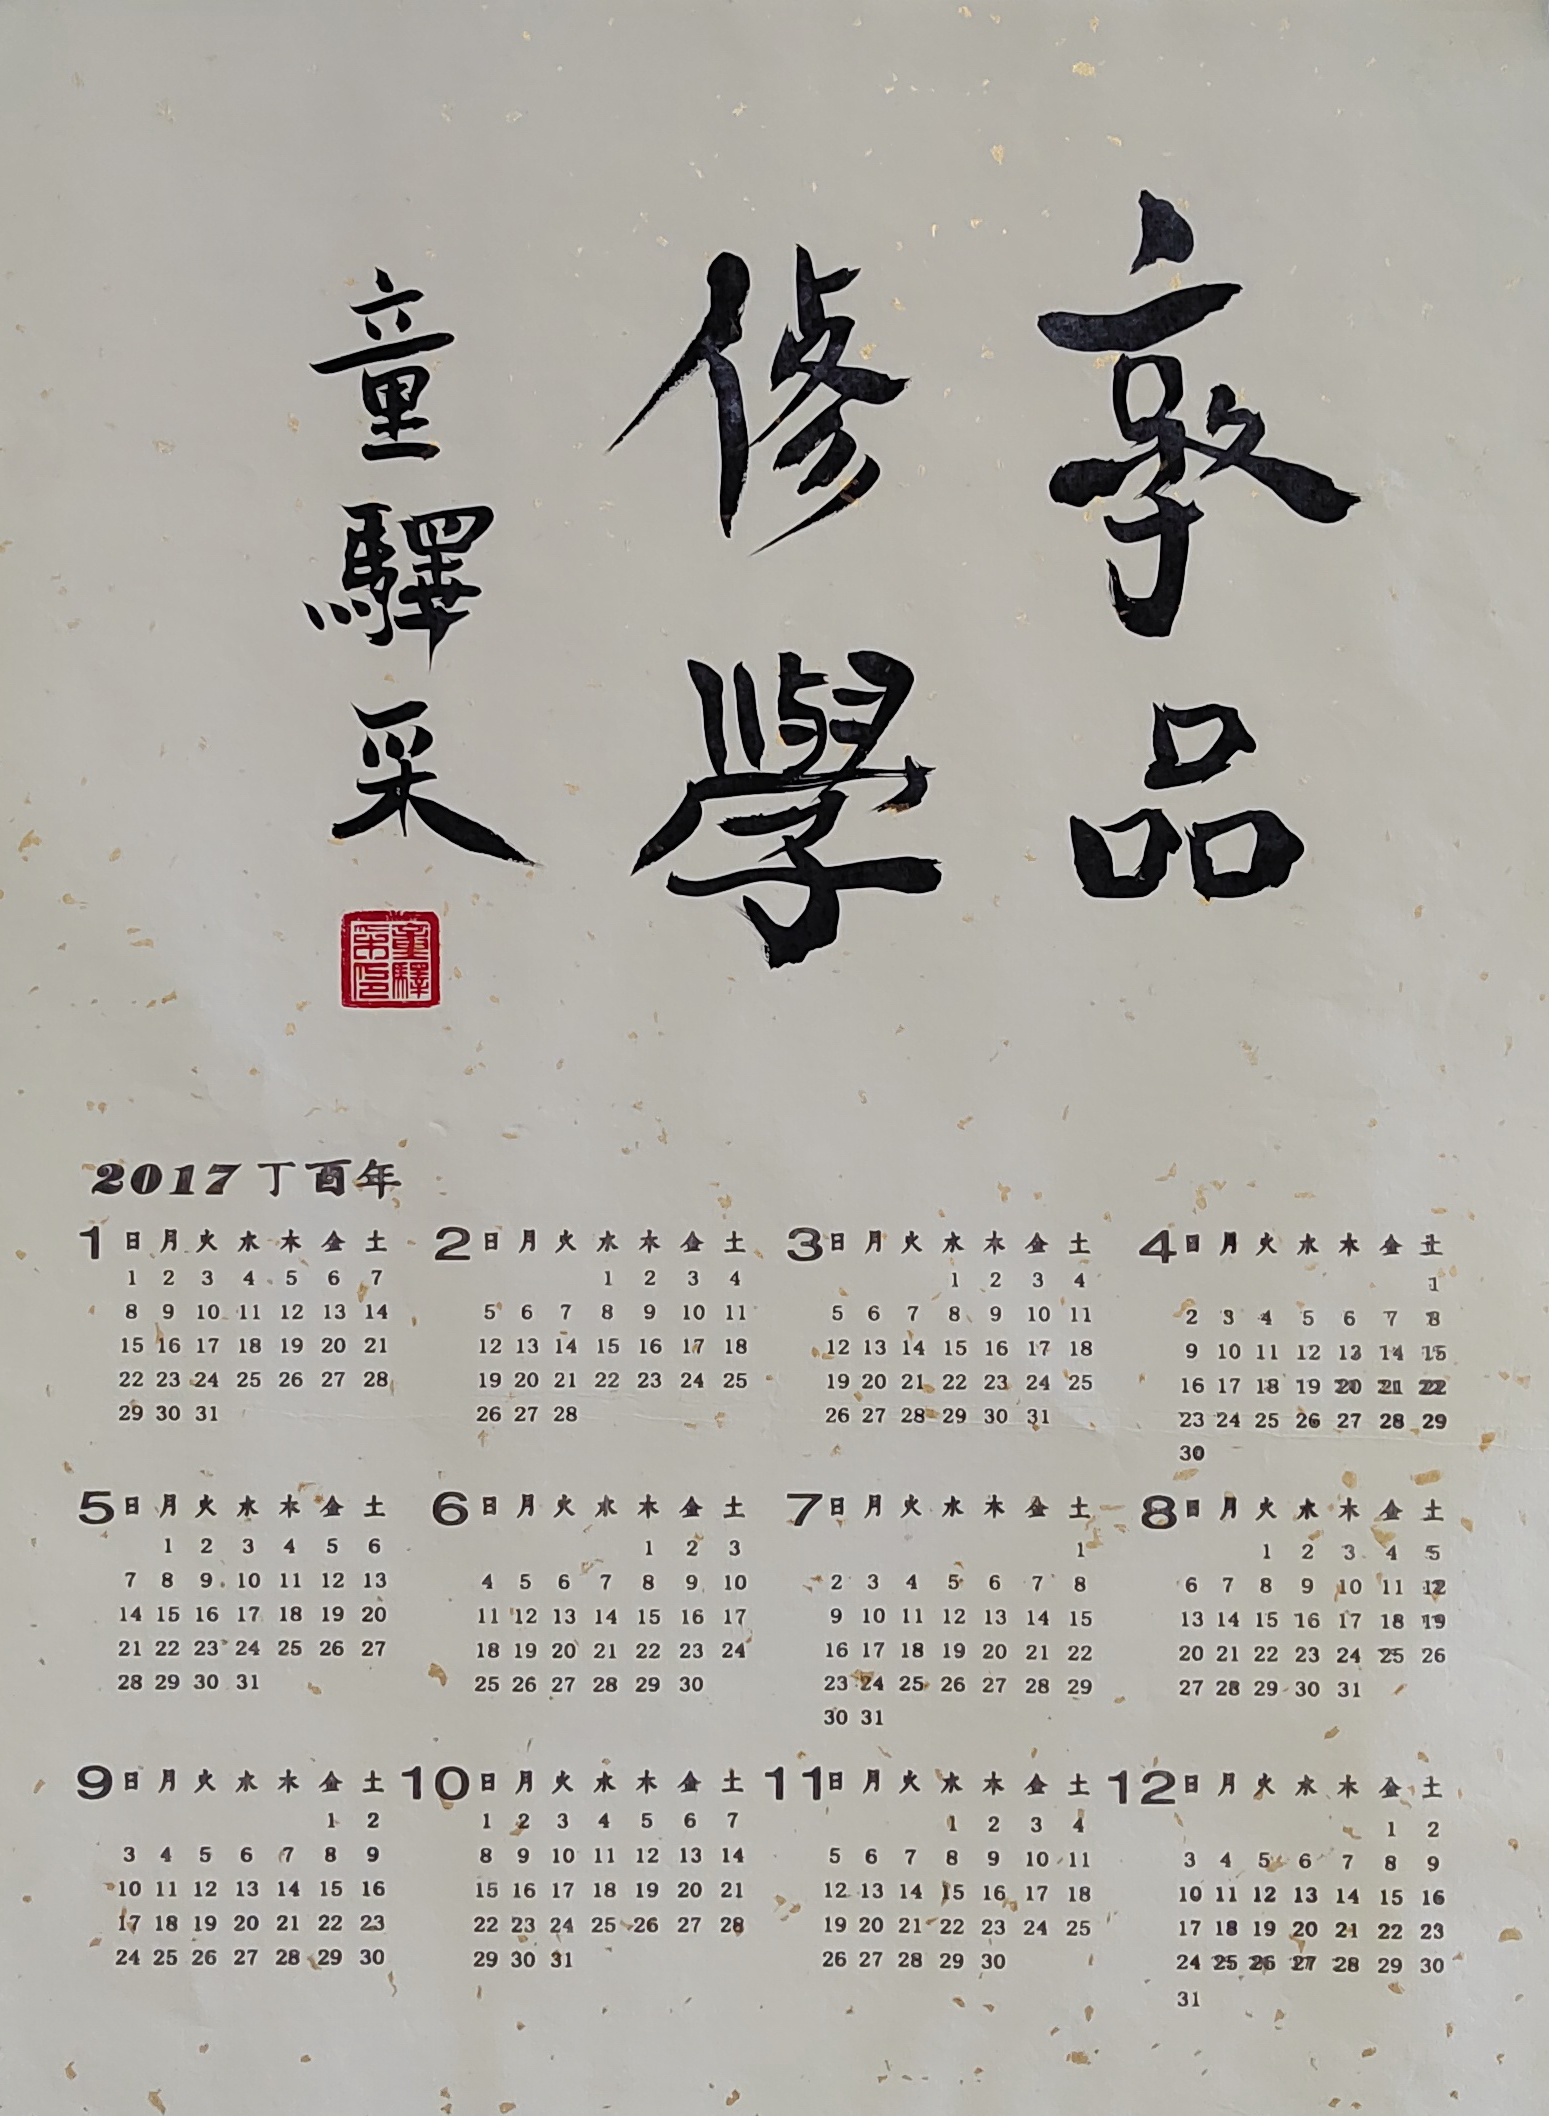 敦品
修學
童驛采
童驛
采印
2017丁酉年
1 日 月 火 水 木 金 土
1 2 3 4 5 6 7
8 9 10 11 12 13 14
15 16 17 18 19 20 21
22 23 24 25 26 27 28
29 30 31
2 日 月 火 水 木 金 土
1 2 3 4
5 6 7 8 9 10 11
12 13 14 15 16 17 18
19 20 21 22 23 24 25
26 27 28
3 日 月 火 水 木 金 土
1 2 3 4
5 6 7 8 9 10 11
12 13 14 15 16 17 18
19 20 21 22 23 24 25
26 27 28 29 30 31
4 日 月 火 水 木 金 土
1
2 3 4 5 6 7 8
9 10 11 12 13 14 15
16 17 18 19 20 21 22
23 24 25 26 27 28 29
30
5 日 月 火 水 木 金 土
1 2 3 4 5 6
7 8 9 10 11 12 13
14 15 16 17 18 19 20
21 22 23 24 25 26 27
28 29 30 31
6 日 月 火 水 木 金 土
1 2 3
4 5 6 7 8 9 10
11 12 13 14 15 16 17
18 19 20 21 22 23 24
25 26 27 28 29 30
7 日 月 火 水 木 金 土
1
2 3 4 5 6 7 8
9 10 11 12 13 14 15
16 17 18 19 20 21 22
23 24 25 26 27 28 29
30 31
8 日 月 火 水 木 金 土
1 2 3 4 5
6 7 8 9 10 11 12
13 14 15 16 17 18 19
20 21 22 23 24 25 26
27 28 29 30 31
9 日 月 火 水 木 金 土
1 2
3 4 5 6 7 8 9
10 11 12 13 14 15 16
17 18 19 20 21 22 23
24 25 26 27 28 29 30
10 日 月 火 水 木 金 土
1 2 3 4 5 6 7
8 9 10 11 12 13 14
15 16 17 18 19 20 21
22 23 24 25 26 27 28
29 30 31
11 日 月 火 水 木 金 土
1 2 3 4
5 6 7 8 9 10 11
12 13 14 15 16 17 18
19 20 21 22 23 24 25
26 27 28 29 30
12 日 月 火 水 木 金 土
1 2
3 4 5 6 7 8 9
10 11 12 13 14 15 16
17 18 19 20 21 22 23
24 25 26 27 28 29 30
31